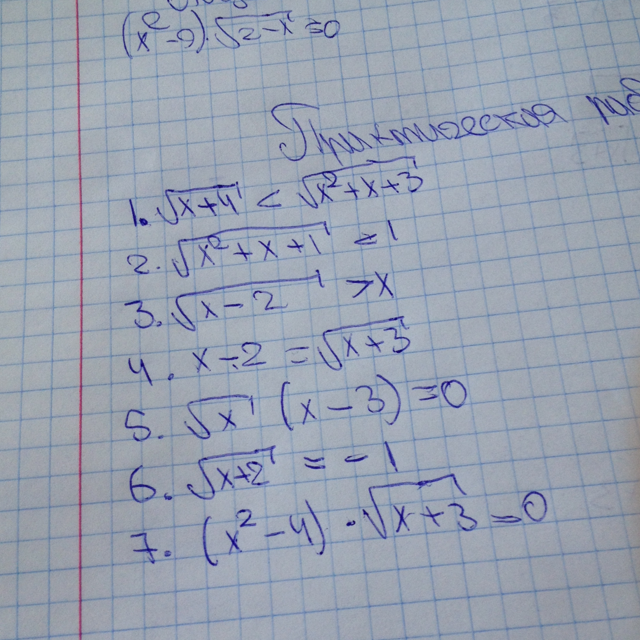 (x²-9)·√(2-x)=0
Практическая
1. √(x+4) < √(x²+x+3)
2. √(x²+x+1) =1
3. √(x-2) >x
4. x-2 =√(x+3)
5. √x (x-3)=0
6. √(x+2) = -1
7. (x²-4)·√(x+3)=0